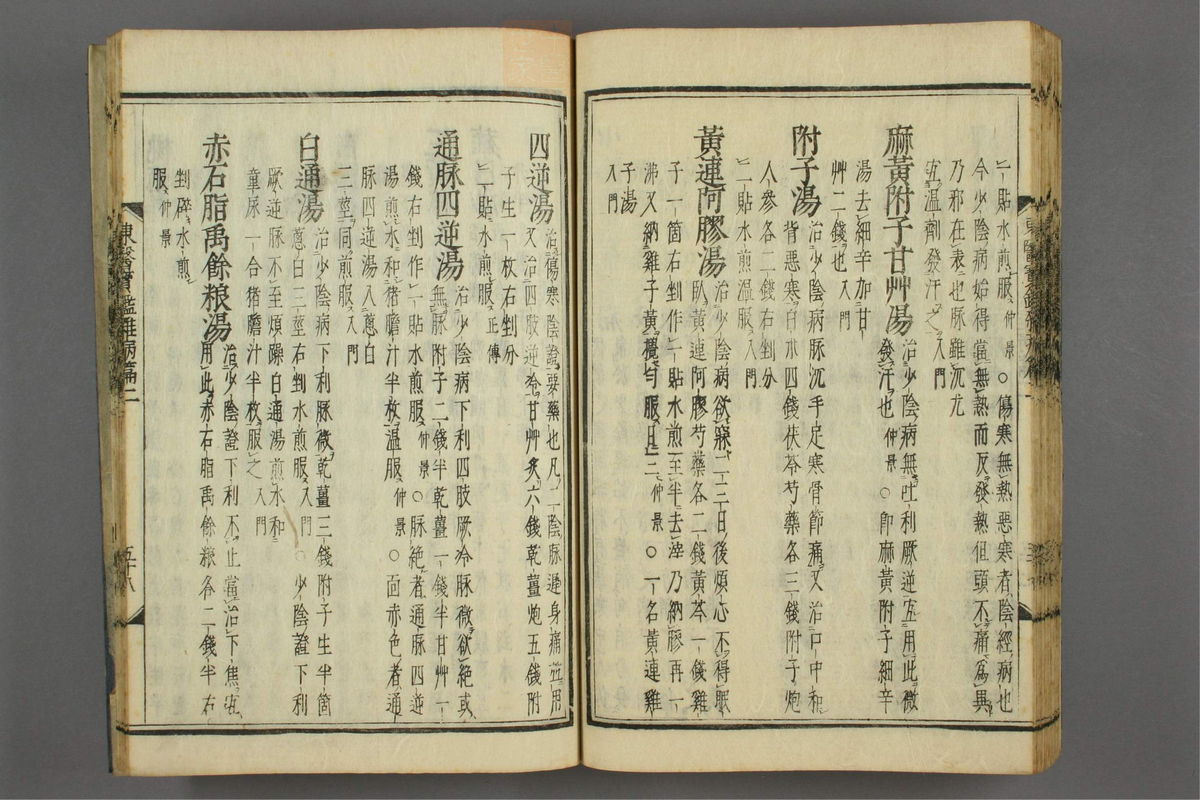 一貼水煎服仲景○傷寒無熱惡寒者陰經病也
今少陰病始得當無熱而反發熱但頭不痛爲異
乃邪在表也脉雖沉尤
宜温劑發汗之入門
麻黄附子甘艸湯治少陰病無吐利厥逆宜用此微
發汗也仲景○卽麻黄附子細辛
湯去細辛加甘
艸二錢也入門
附子湯治少陰病脉沉手足寒骨節痛又治口中和
背惡寒白朮四錢茯苓芍藥各三錢附子炮
人參各二錢右剉分
二貼水煎温服入門
黄連阿膠湯治少陰病欲寐二三日後煩心不得眠
臥黄連阿膠芍藥各二錢黄芩一錢雞
子一箇右剉作一貼水煎至半去滓乃納膠再一
沸又納雞子黄攪勻服日三仲景○一名黄連雞
子湯
入門
四逆湯治傷寒陰證要藥也凡三陰脉遲身痛並用
又治四肢逆冷甘艸炙六錢乾薑炮五錢附
子生一枚右剉分
二貼水煎服正傳
通脉四逆湯治少陰病下利四肢厥冷脉微欲絶或
無脉附子二錢半乾薑一錢半甘艸一
錢右剉作一貼水煎服仲景○脉絶者通脉四逆
湯煎水和猪膽汁半枚温服仲景○面赤色者通
脉四逆湯入葱白
三莖同煎服入門
白通湯治少陰病下利脉微乾薑三錢附子生半箇
葱白三莖右剉水煎服入門○少陰證下利
厥逆脉不至煩躁白通湯煎水和
童尿一合猪膽汁半枚服之入門
赤石脂禹餘粮湯治少陰證下利不止當治下焦宜
用此赤石脂禹餘粮各二錢半右
剉碎水煎
服仲景
東醫寶鑑雜病篇二
五十八